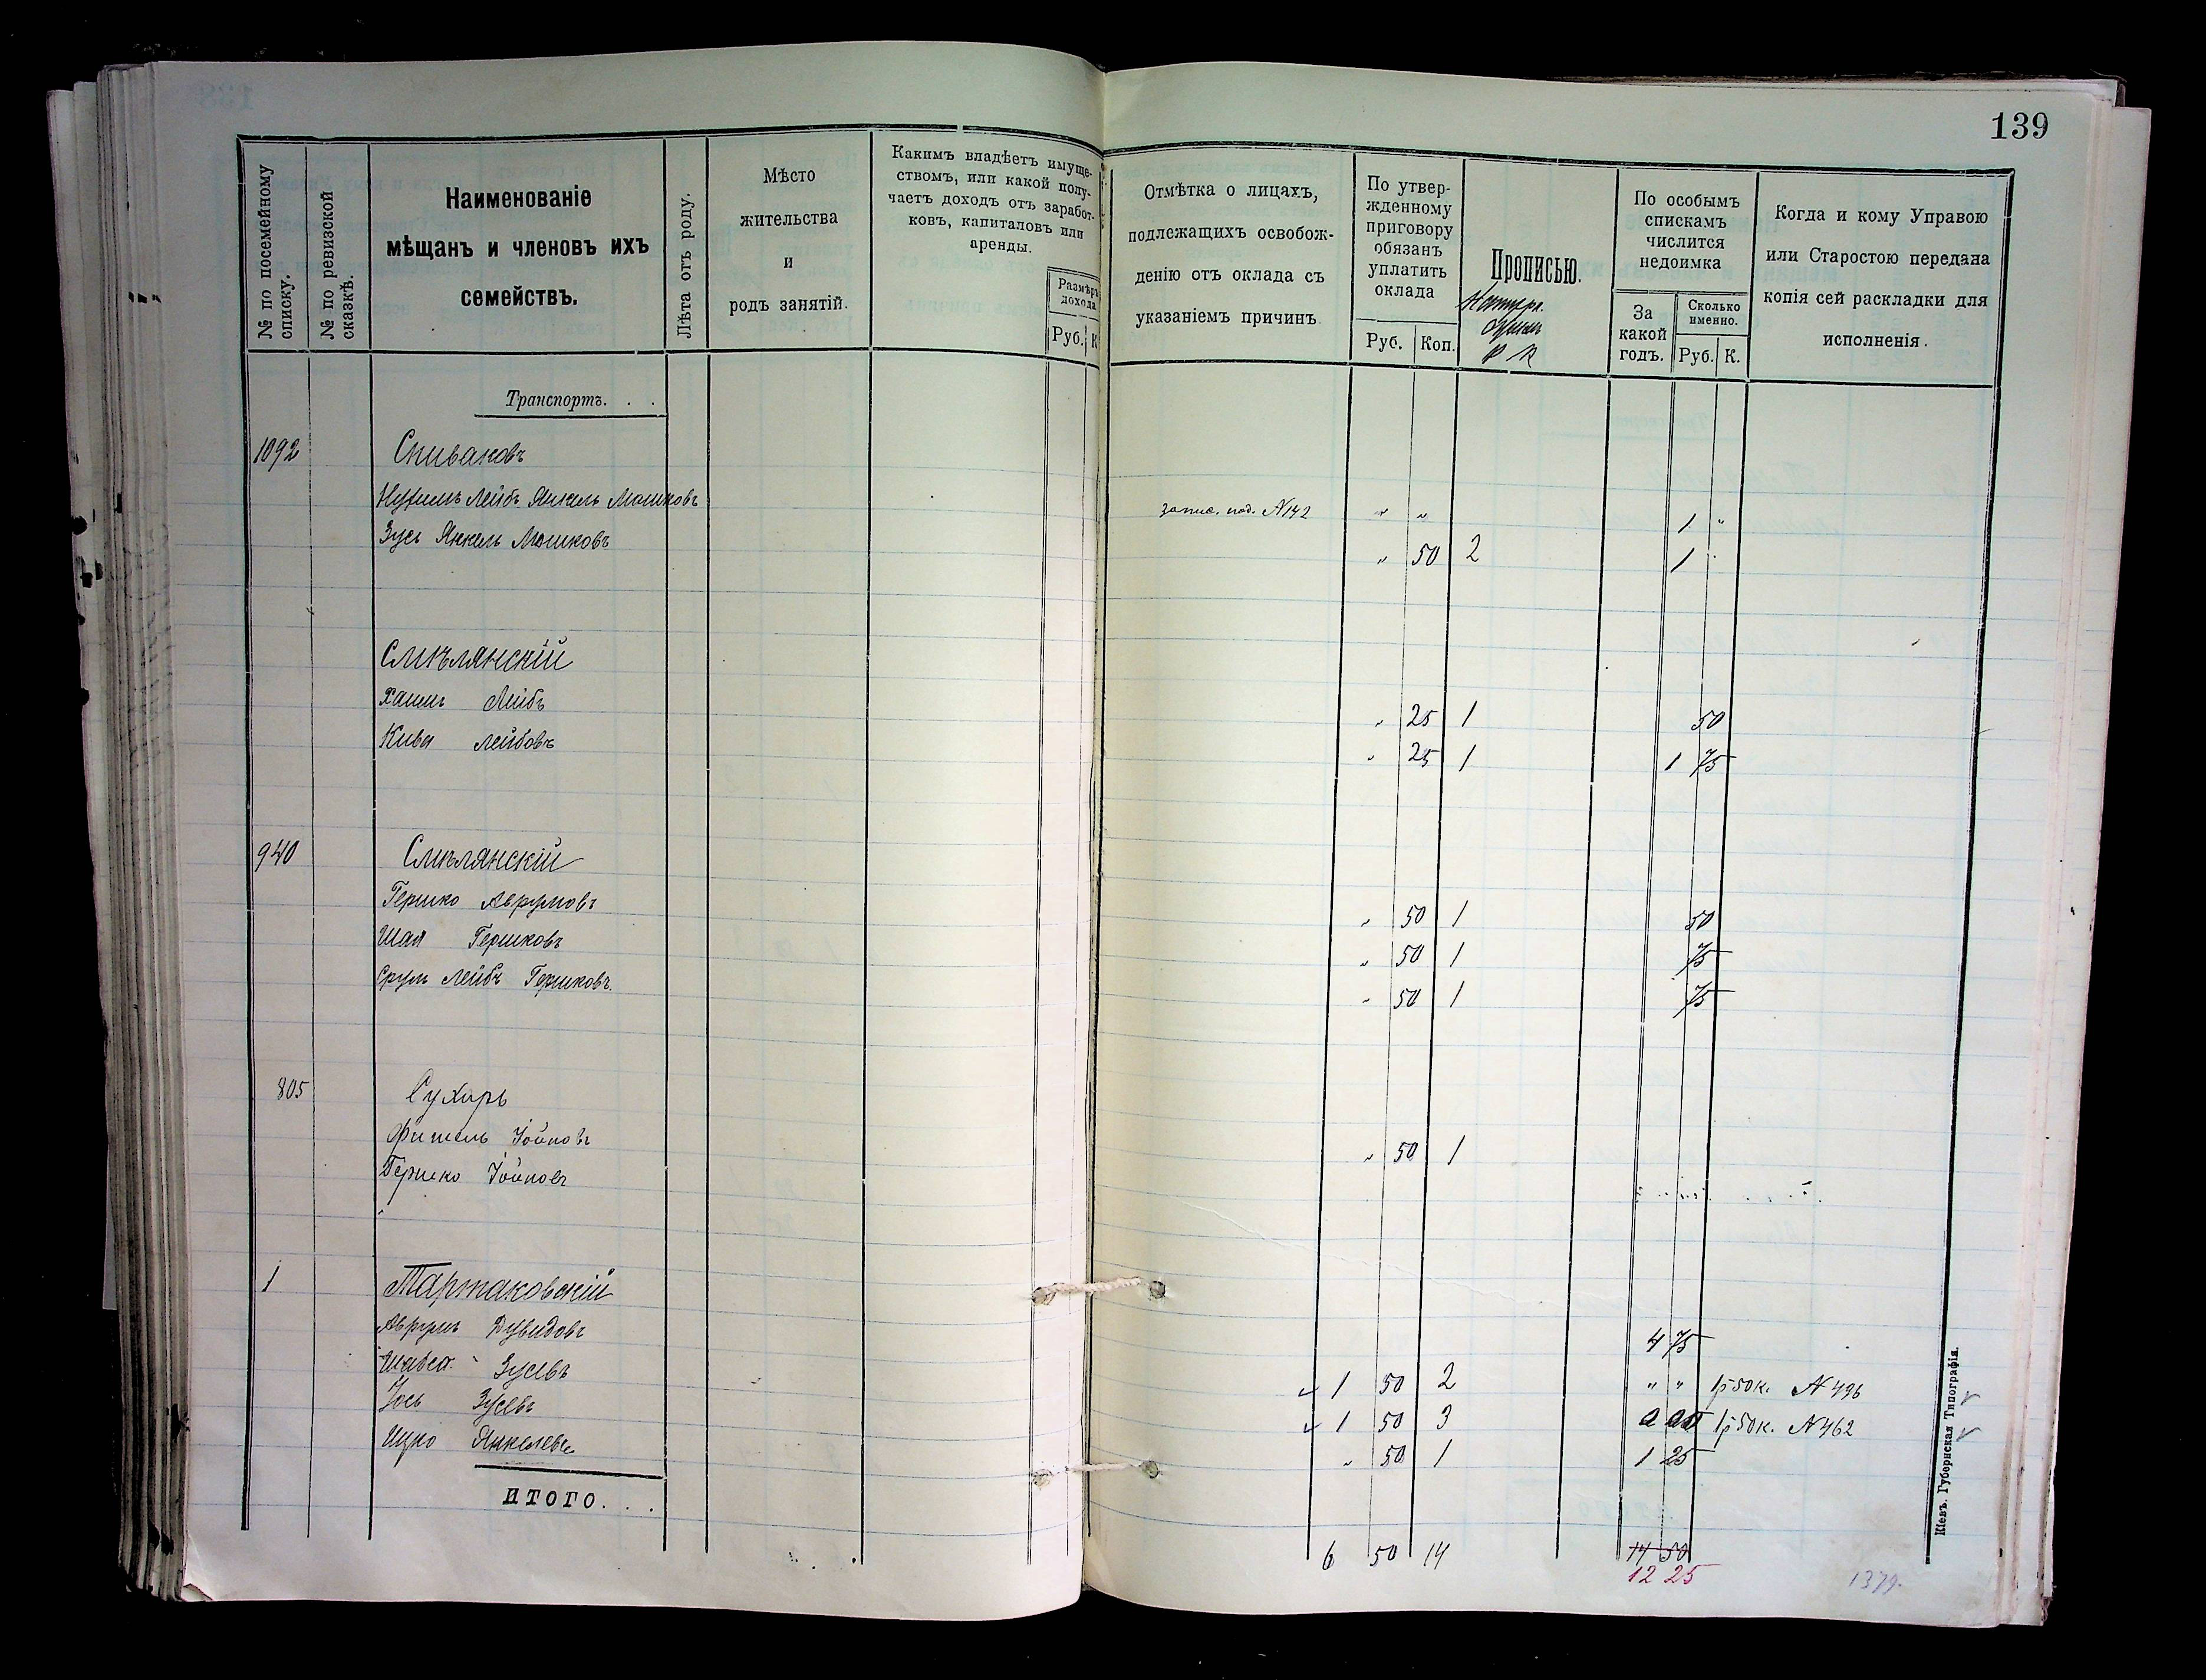 139
№ по посемейному списку.
№ по ревизской сказкѣ.
Наименованіе
мѣщанъ и членовъ ихъ
семействъ.
Лѣта отъ роду.
Мѣсто
жительства
и
родъ занятій.
Какимъ владѣетъ имуще-
ствомъ, или какой полу-
чаетъ доходъ отъ заработ-
ковъ, капиталовъ или
аренды.
Размѣръ
дохода
Руб. К
Отмѣтка о лицахъ,
подлежащихъ освобож-
денію отъ оклада съ
указаніемъ причинъ
По утвер-
жденному
приговору
обязанъ
уплатить
оклада
Руб. Коп.
Прописью.
Р К
По особымъ
спискамъ
числится
недоимка
За
какой
годъ.
Сколько
именно.
Руб. К.
Когда и кому Управою
или Старостою передана
копія сей раскладки для
исполненія.
Транспортъ. . .
1092 Спиваковъ
Лейбъ Янкель Мошковъ запис. под. №142 " " 1 "
Зусь Янкель Мошковъ " 50 2 1
Смѣлянскій
Хаимъ Лейбъ " 25 1 50
Кива Лейбовъ " 25 1 1 75
940 Смѣлянскій
Гершко Аврумовъ " 50 1 50
Шая Гершковъ " 50 1 75
Срулъ Лейбъ Гершковъ. " 50 1 75
805 Сухарь
Фишель Іойновъ " 50 1
Гершко Іойновъ
1 Тартаковскій
Аврумъ Дувидовъ 4 75
Шавса Зусевъ 1 50 2 " " 1р 50к. №496
Іось Зусевъ 1 50 3 1р 50к. №462
Янкелевъ " 50 1 1 25
ИТОГО. . .
6 50 14 14 50
12 25
1379.
Кіевъ. Губернская Типографія.